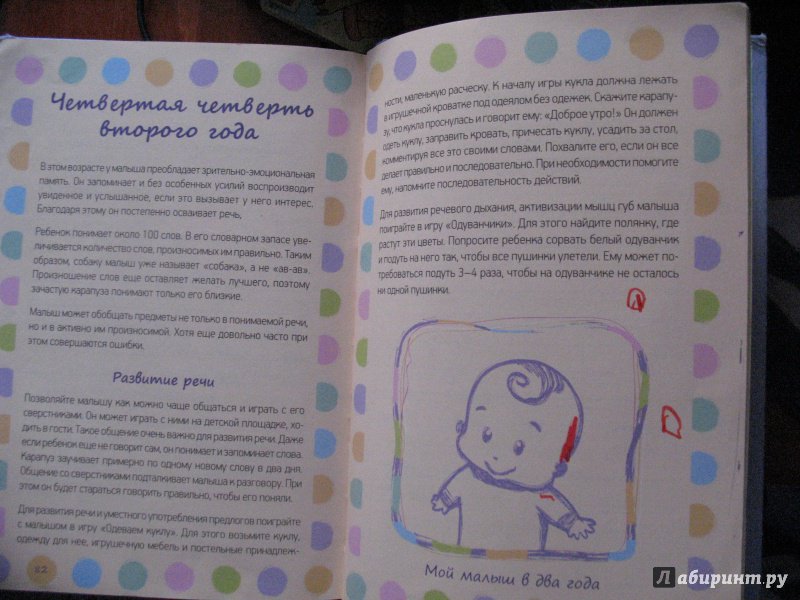 Четвертая четверть
второго года
В этом возрасте у малыша преобладает зрительно-эмоциональная
память. Он запоминает и без особенных усилий воспроизводит
увиденное и услышанное, если это вызывает у него интерес.
Благодаря этому он постепенно осваивает речь.
Ребенок понимает около 100 слов. В его словарном запасе уве-
личивается количество слов, произносимых им правильно. Таким
образом, собаку малыш уже называет «собака», а не «ав-ав».
Произношение слов еще оставляет желать лучшего, поэтому
зачастую карапуза понимают только его близкие.
Малыш может обобщать предметы не только в понимаемой речи,
но и в активно им произносимой. Хотя еще довольно часто при
этом совершаются ошибки.
Развитие речи
Позволяйте малышу как можно чаще общаться и играть с его
сверстниками. Он может играть с ними на детской площадке, хо-
дить в гости. Такое общение очень важно для развития речи. Даже
если ребенок еще не говорит сам, он понимает и запоминает слова.
Карапуз заучивает примерно по одному новому слову в два дня.
Общение со сверстниками подталкивает малыша к разговору. При
этом он будет стараться говорить правильно, чтобы его поняли.
Для развития речи и уместного употребления предлогов поиграйте
с малышом в игру «Одеваем куклу». Для этого возьмите куклу,
одежду для нее, игрушечную мебель и постельные принадлеж-
82
ности, маленькую расческу. К началу игры кукла должна лежать
в игрушечной кроватке под одеялом без одежек. Скажите карапу-
зу, что кукла проснулась и говорит ему: «Доброе утро!» Он должен
одеть куклу, заправить кровать, причесать куклу, усадить за стол,
комментируя все это своими словами. Похвалите его, если он все
делает правильно и последовательно. При необходимости помогите
ему, напомните последовательность действий.
Для развития речевого дыхания, активизации мышц губ малыша
поиграйте в игру «Одуванчики». Для этого найдите полянку, где
растут эти цветы. Попросите ребенка сорвать белый одуванчик
и подуть на него так, чтобы все пушинки улетели. Ему может по-
требоваться подуть 3–4 раза, чтобы на одуванчике не осталось
ни одной пушинки.
Мой малыш в два года
Лабиринт.ру